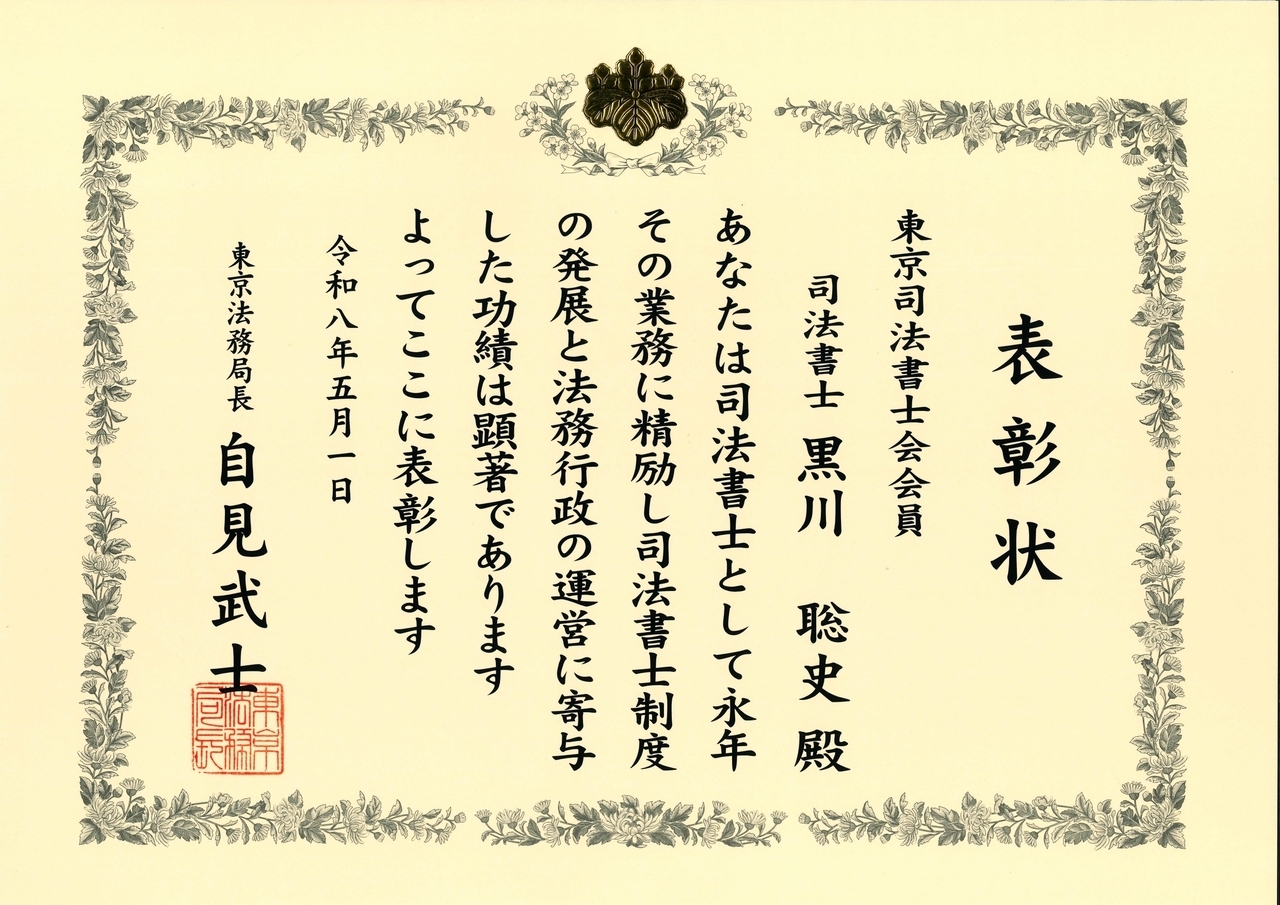 表彰状
東京司法書士会会員
司法書士 黒川 聡史 殿
あなたは司法書士として永年
その業務に精励し司法書士制度
の発展と法務行政の運営に寄与
した功績は顕著であります
よってここに表彰します
令和八年五月一日
東京法務局長 自見武士
東京
法務
局長